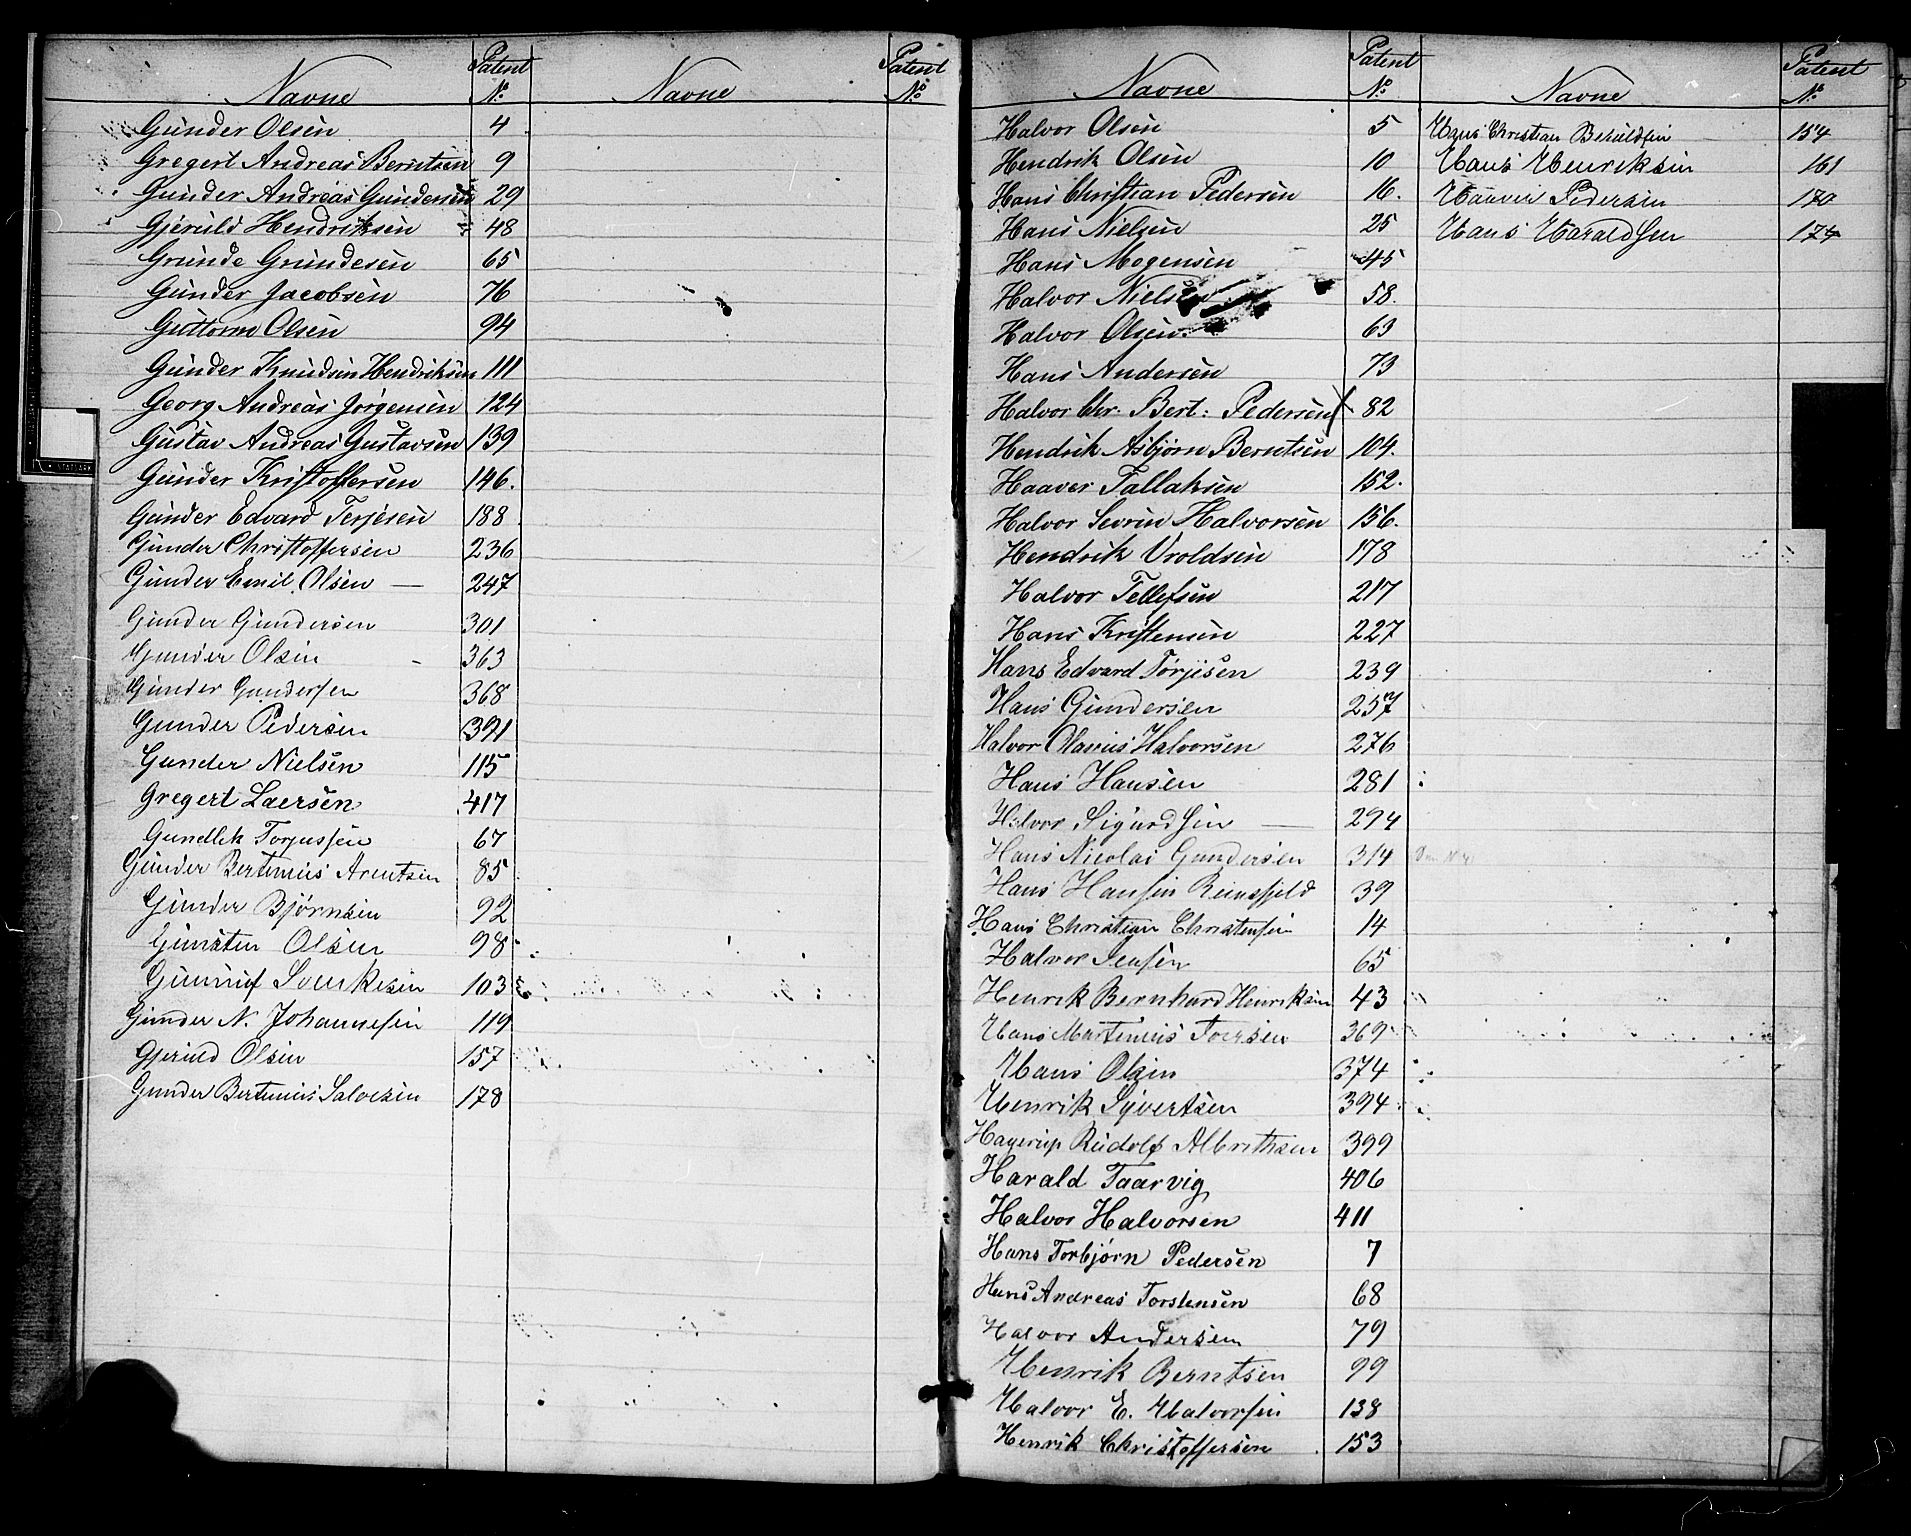 Navne Patent No Navne Patent No
Gunder Olsen 4
Gregert Andreas Berntsen 9
Gunder Andreas Gundersen 29
Gjeruld Hendriksen 48
Grunde Grundesen 65
Gunder Jacobsen 76
Guttorm Olsen 94
Gunder Knudsen Hendriksen 111
Georg Andreas Jørgensen 124
Gustav Andreas Gustavsen 139
Gunder Kristoffersen 146.
Gunder Edvard Terjesen 188
Gunder Christoffersen 236
Gunder Emil Olsen — 247
Gunder Gundersen 301
Gunder Olsen 363
Gunder Gundersen 368
Gunder Pedersen 391
Gunder Nielsen 115
Gregert Laersen 417
Gundlek Torjussen 67
Gunder Bertenius Arentsen 85
Gunder Bjørnsen 92
Gunsten Olsen 98
Gunnuf Svenkesen 103
Gunder N. Johannesen 119
Gjeruld Olsen 157
Gunder Bertenius Salvesen 178
Navne Patent No Navne Patent No
Halvor Olsen 5
Hendrik Olsen 10
Hans Christian Pedersen 16.
Hans Nielsen 25
Hans Mogensen 45
Halvor Nielsen 58.
Halvor Olsen 63
Hans Andersen 73
Halvor Chr. Bert: Pedersen 82
Hendrik Asbjørn Berntsen 104.
Haaver Tallaksen 152.
Halvor Sevrin Halvorsen 156.
Hendrik Vroldsen 178
Halvor Tellefsen 217
Hans Kristensen 227
Hans Edvard Torjesen 239
Hans Gundersen 257
Halvor Olavius Halvorsen 276
Hans Hansen 281
Halvor Sigurdsen — 294
Hans Nicolai Gundersen 314
Hans Hansen Reinsfjeld 39
Hans Christian Christensen 14
Halvor Jensen 65
Henrik Bernhard Henriksen 43
Hans Martenius Toersen 369
Hans Olsen 374
Henrik Syvertsen 394
Hagerup Rudolf Albrethsen 399
Harald Taarvig 406
Halvor Halvorsen 411
Hans Torbjørn Pedersen 7
Hans Andreas Torstensen 68
Halvor Andersen 79
Henrik Berntsen 99
Halvor E. Halvorsen 138
Henrik Christoffersen 153
Hans Christian Beruldsen 154
Hans Henriksen 161
Haaver Pedersen 170
Hans Haraldsen 174